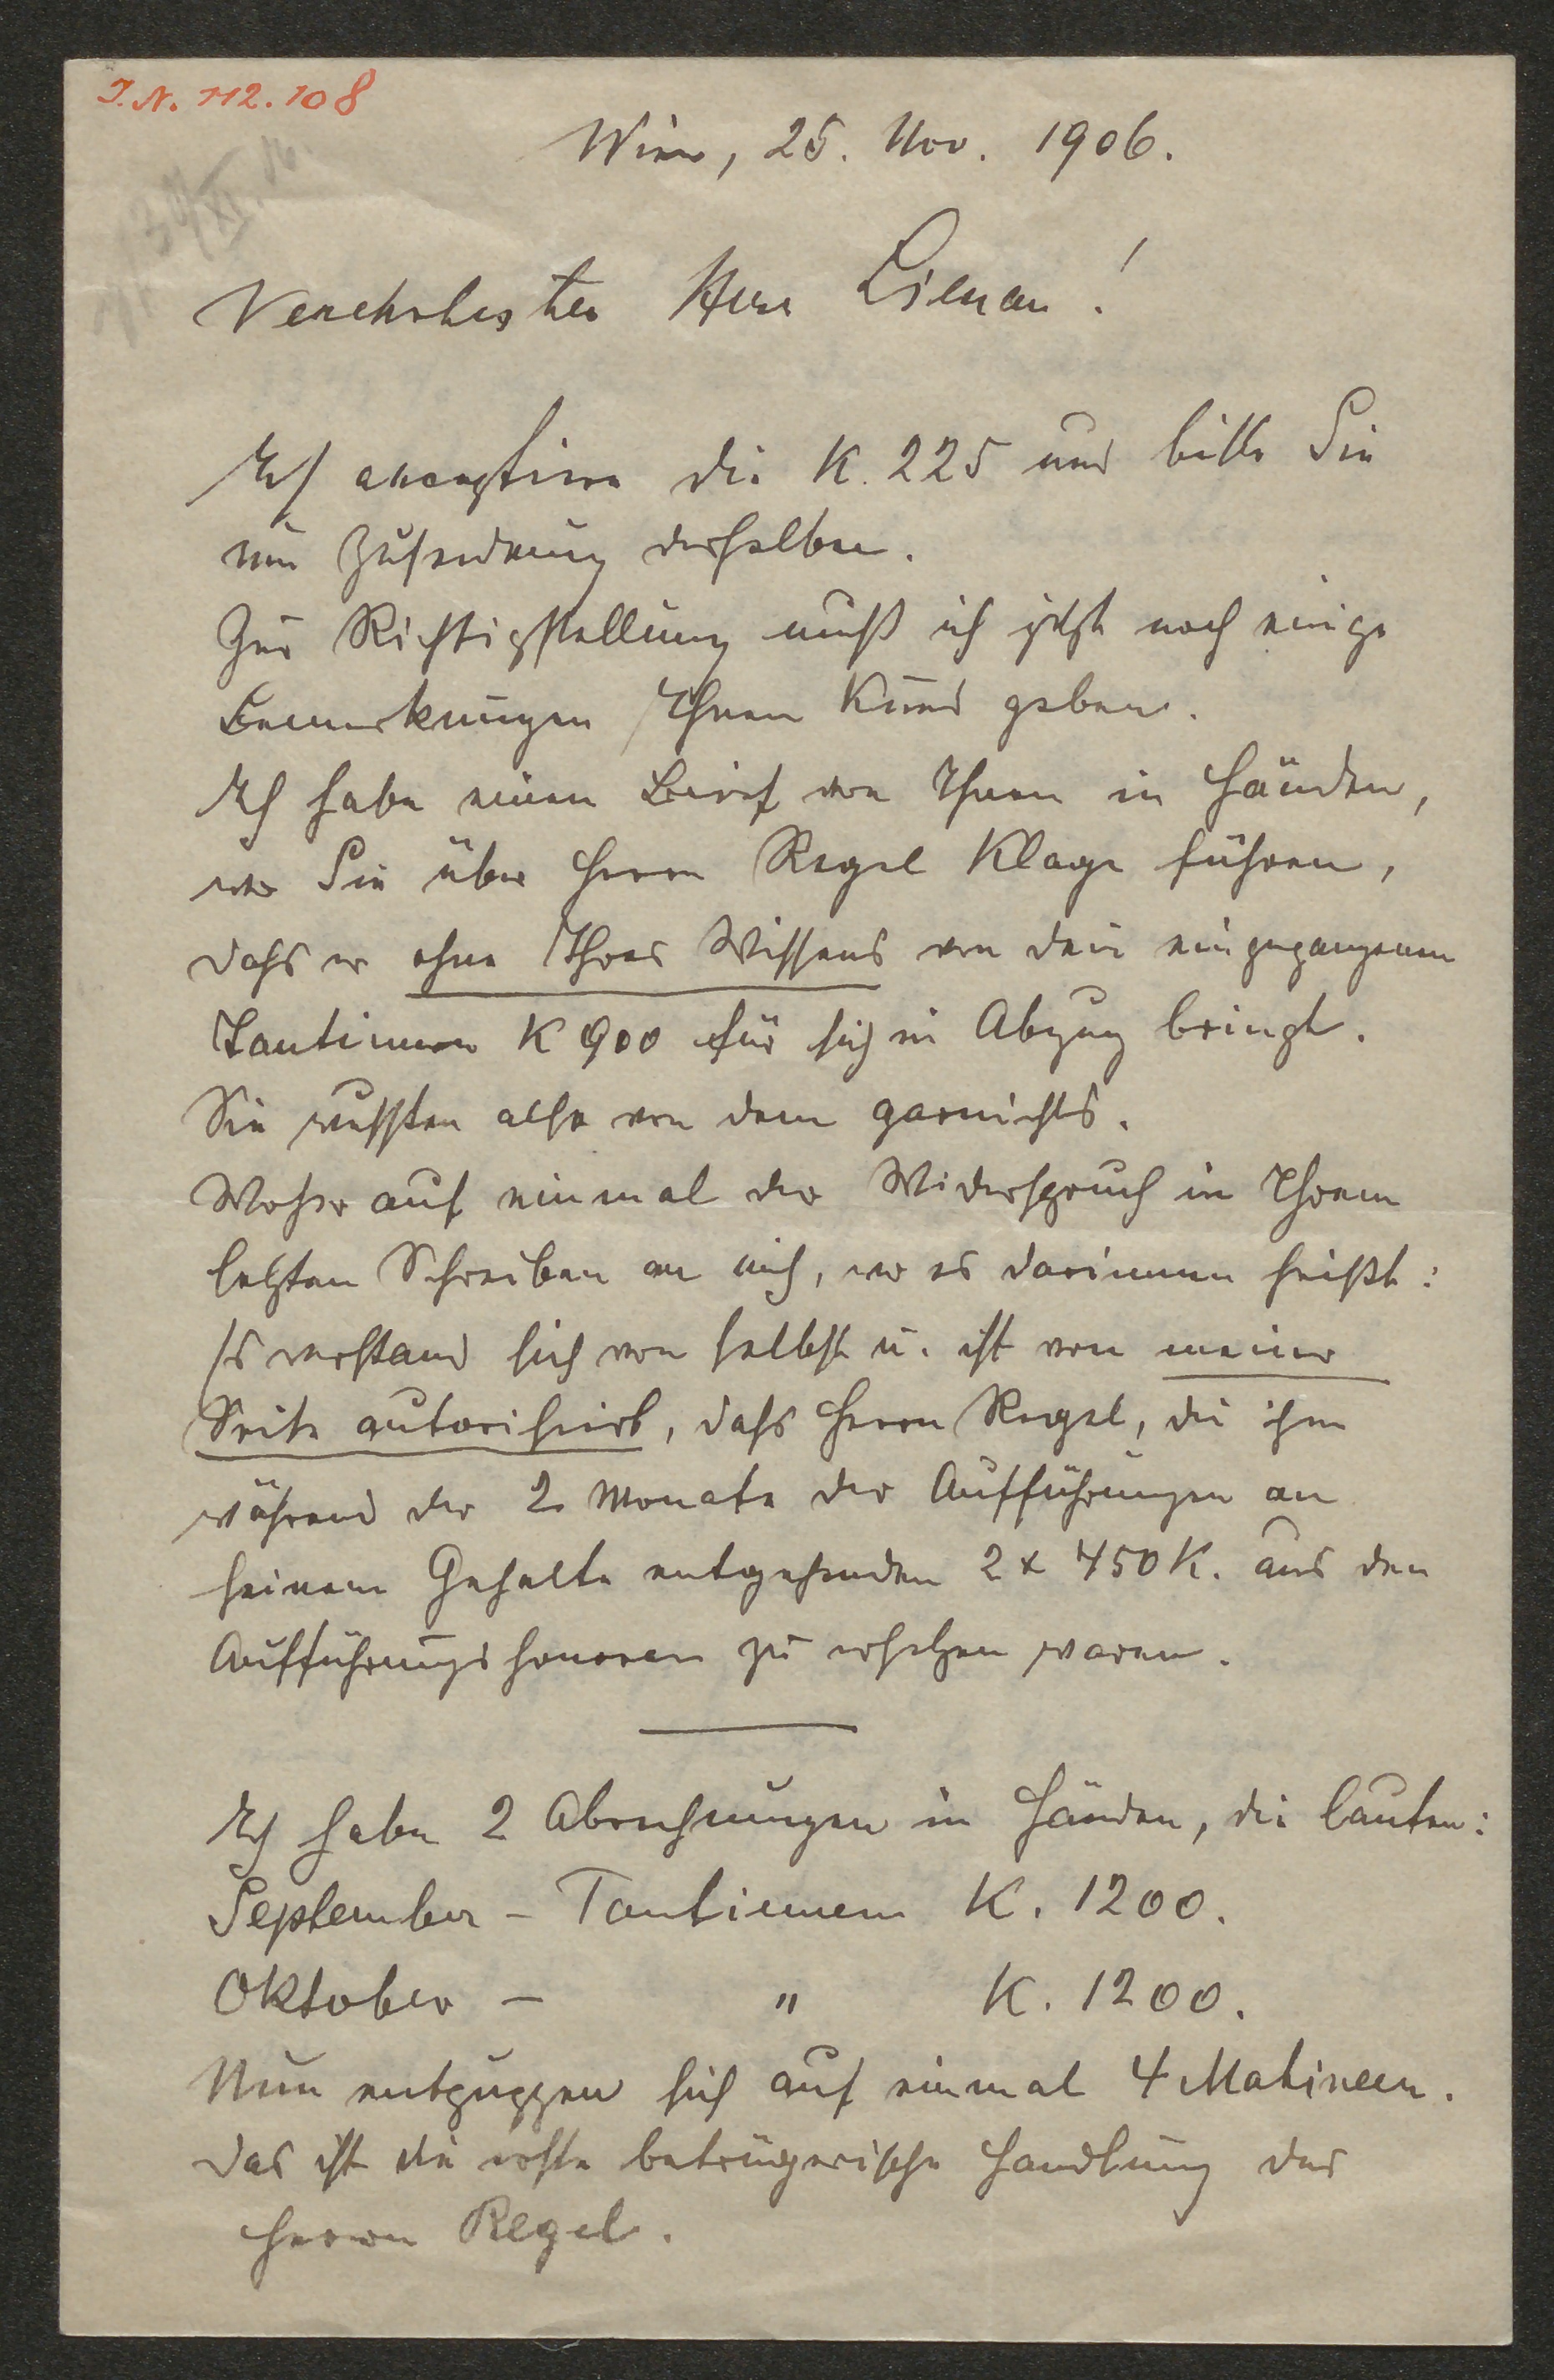 J.N. 112.108
Wien, 25. Nov. 1906.
Verehrtester Herr Lienau!
Ich acceptire die K. 225 und bitte Sie
um Zusendung derselben.
Zur Richtigstellung muß ich jetzt noch einige
Bemerkungen Ihnen Kund geben.
Ich habe einen Brief von Ihnen in Händen,
wo Sie über Herrn Regel Klage führen,
dass er ohne Ihres Wissens von den eingegangenen
Tantiemen K 900 für sich in Abzug bringt.
Sie wussten also von dem garnichts.
Woher auf einmal der Widerspruch in Ihrem
letzten Schreiben an mich, wo es darinnen heißt:
Es verstand sich von selbst u. ist von meiner
Seite autorisirt, dass Herrn Regel, die ihm
während der 2 Monate der Aufführungen an
seinem Gehalte entgehenden 2 x 450 K. aus den
Aufführungshonoren zu ersetzen waren.
Ich habe 2 Abrechnungen in Händen, die lauten:
September - Tantiemen K. 1200.
Oktober - " K. 1200.
Nun entpuppen sich auf einmal 4 Matineen.
Das ist die erste betrügerische Handlung des
Herrn Regel.